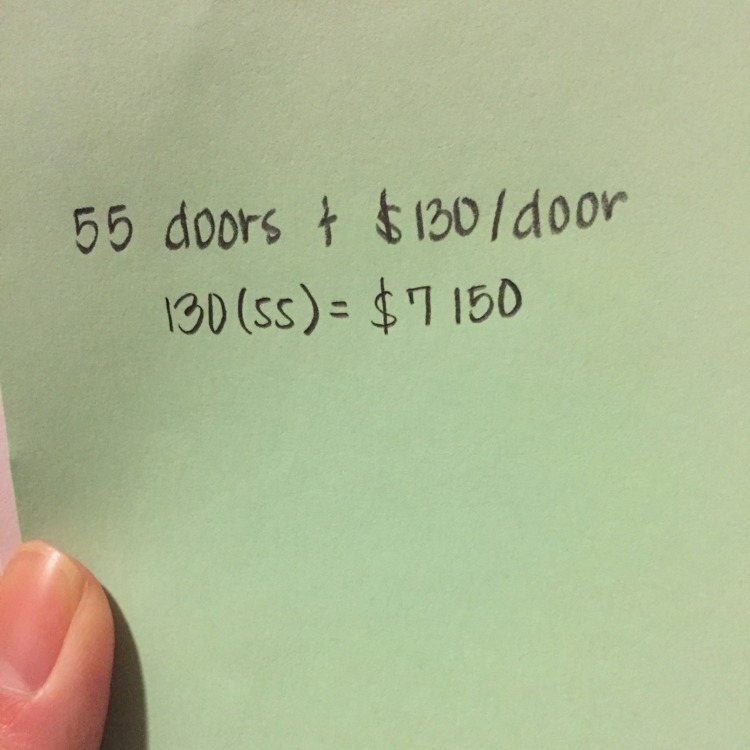 55 doors + $130/door
130(55) = $7 150